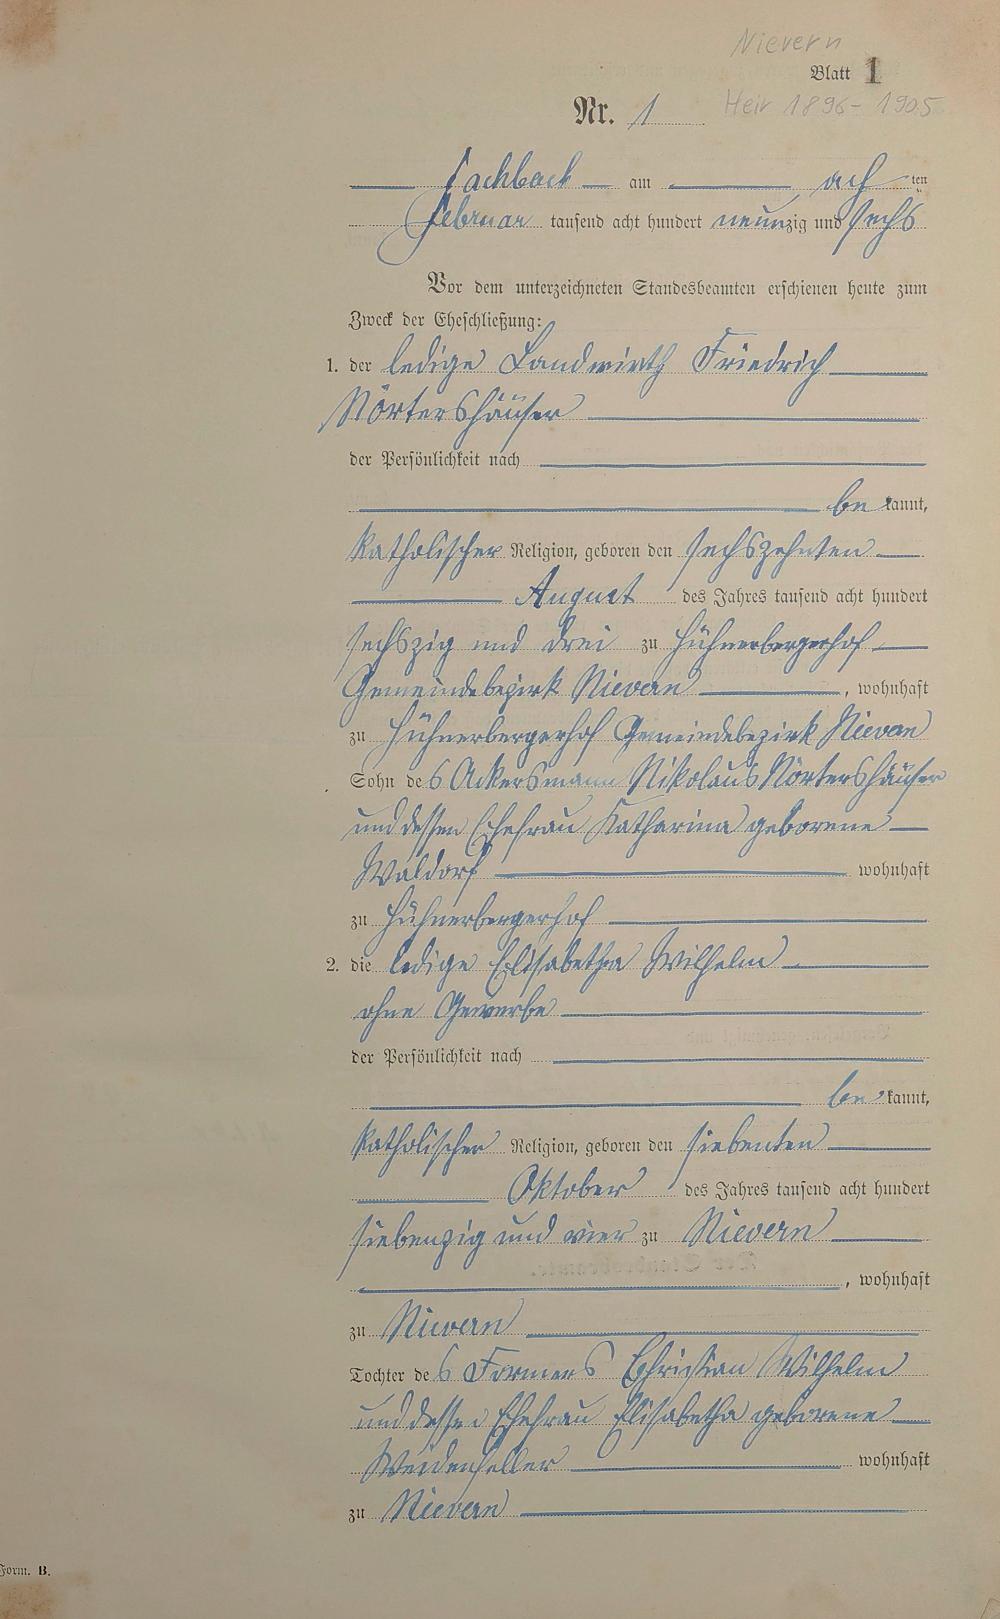 Nievern
Blatt 1
Nr. 1 Heir 1896-1905
Fachbach am acht ten
Februar tausend acht hundert neunzig und sechs
Vor dem unterzeichneten Standesbeamten erschienen heute zum
Zweck der Eheschließung:
1. der ledige Landwirth Friedrich
Nörtershäuser
der Persönlichkeit nach
be kannt,
katholischer Religion, geboren den sechszehnten
August des Jahres tausend acht hundert
sechszig und drei zu Hühnerbergerhof
Gemeindebezirk Nievern, wohnhaft
zu Hühnerbergerhof Gemeindebezirk Nievern
Sohn des Ackersmann Nikolaus Nörtershäuser
und dessen Ehefrau Katharina geborene
Waldorf wohnhaft
zu Hühnerbergerhof
2. die ledige Elisabetha Wilhelm
ohne Gewerbe
der Persönlichkeit nach
be kannt,
katholischer Religion, geboren den siebenten
Oktober des Jahres tausend acht hundert
siebenzig und vier zu Nievern
, wohnhaft
zu Nievern
Tochter des Formers Christian Wilhelm
und dessen Ehefrau Elisabetha geborene
Weidenfeller wohnhaft
zu Nievern
Form. B.